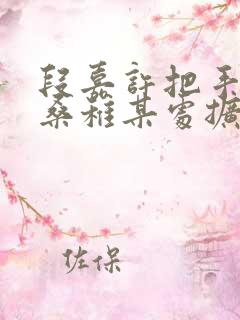 段嘉許把手
桑稚某處擴
佐保